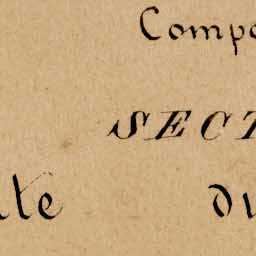 Compo
SECT
ite du